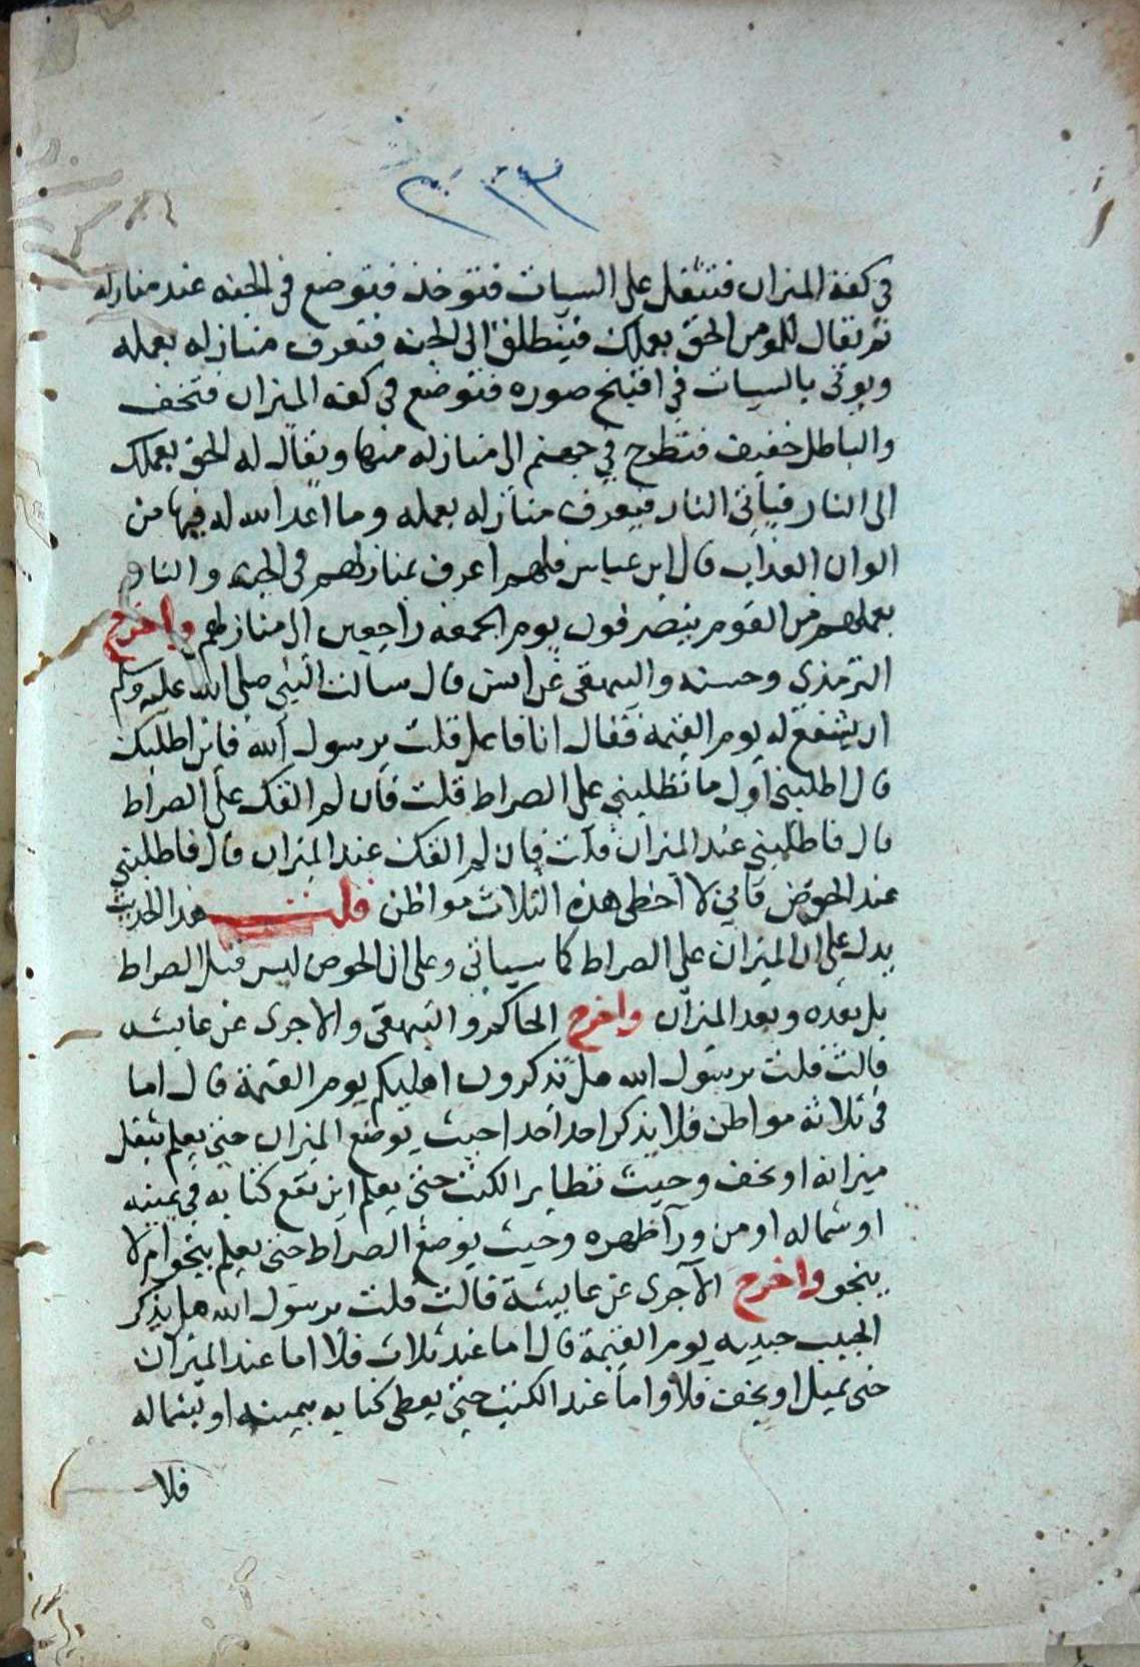 ٢١٣
في كفة الميزان فتثقل على السيات فتوخذ فتوضع في الجنه عند منازله
ثم يقال للمومن الحق بعملك فينطلق الى الجنه فتعرف منازله بعمله
ويوتى بالسيات في اقبح صوره فتوضع في كفه الميزان فتخف
والباطل خفيف فتطرح في جهنم الى منازله منها ويقال له الحق بعملك
الى النار فياتي النار فيعرف منازله بعمله وما اعد الله له فيها من
الوان العذاب قال ابن عباس فلهم اعرف بمنازلهم في الجنه والنار
بعملهم من القوم ينصرفون يوم الجمعه راجعين الى منازلهم واخرج
الترمذي وحسنه والبيهقي عن انس قال سالت النبي صلى الله عليه وسلم
ان يشفع لي يوم القيمة فقال انا فاعل قلت يرسول الله فاين اطلبك
قال اطلبني اول ما تطلبني على الصراط قلت فان لم القك على الصراط
قال فاطلبني عند الميزان قلت فان لم القك عند الميزان قال فاطلبني
عند الحوض فاني لا اخطي هذه الثلاث مواطن قلت هذا الحديث
يدل على ان الميزان على الصراط كما سياتي وعلى ان الحوض ليس قبل الصراط
بل بعده وبعد الميزان واخرج الحاكم والبيهقي والاجرى عن عايشه
قالت قلت يرسول الله هل تذكرون اهليكم يوم القيمة قال اما
في ثلاثة مواطن فلا يذكر احد احدا حيث يوضع الميزان حتى يعلم يثقل
ميزانه او يخف وحيث تطاير الكتب حتى يعلم اين يقع كتابه في يمينه
او شماله او من ورآ ظهره وحيث يوضع الصراط حتى يعلم ينجوا ام لا
ينجو واخرج الآجرى عن عايشة قالت قلت يرسول الله هل يذكر
الحبيب حبيبه يوم القيمة قال اما عند ثلاث فلا اما عند الميزان
حتى يميل او يخف فلا واما عند الكتب حتى يعطى كتابه بيمينه او بشماله
فلا